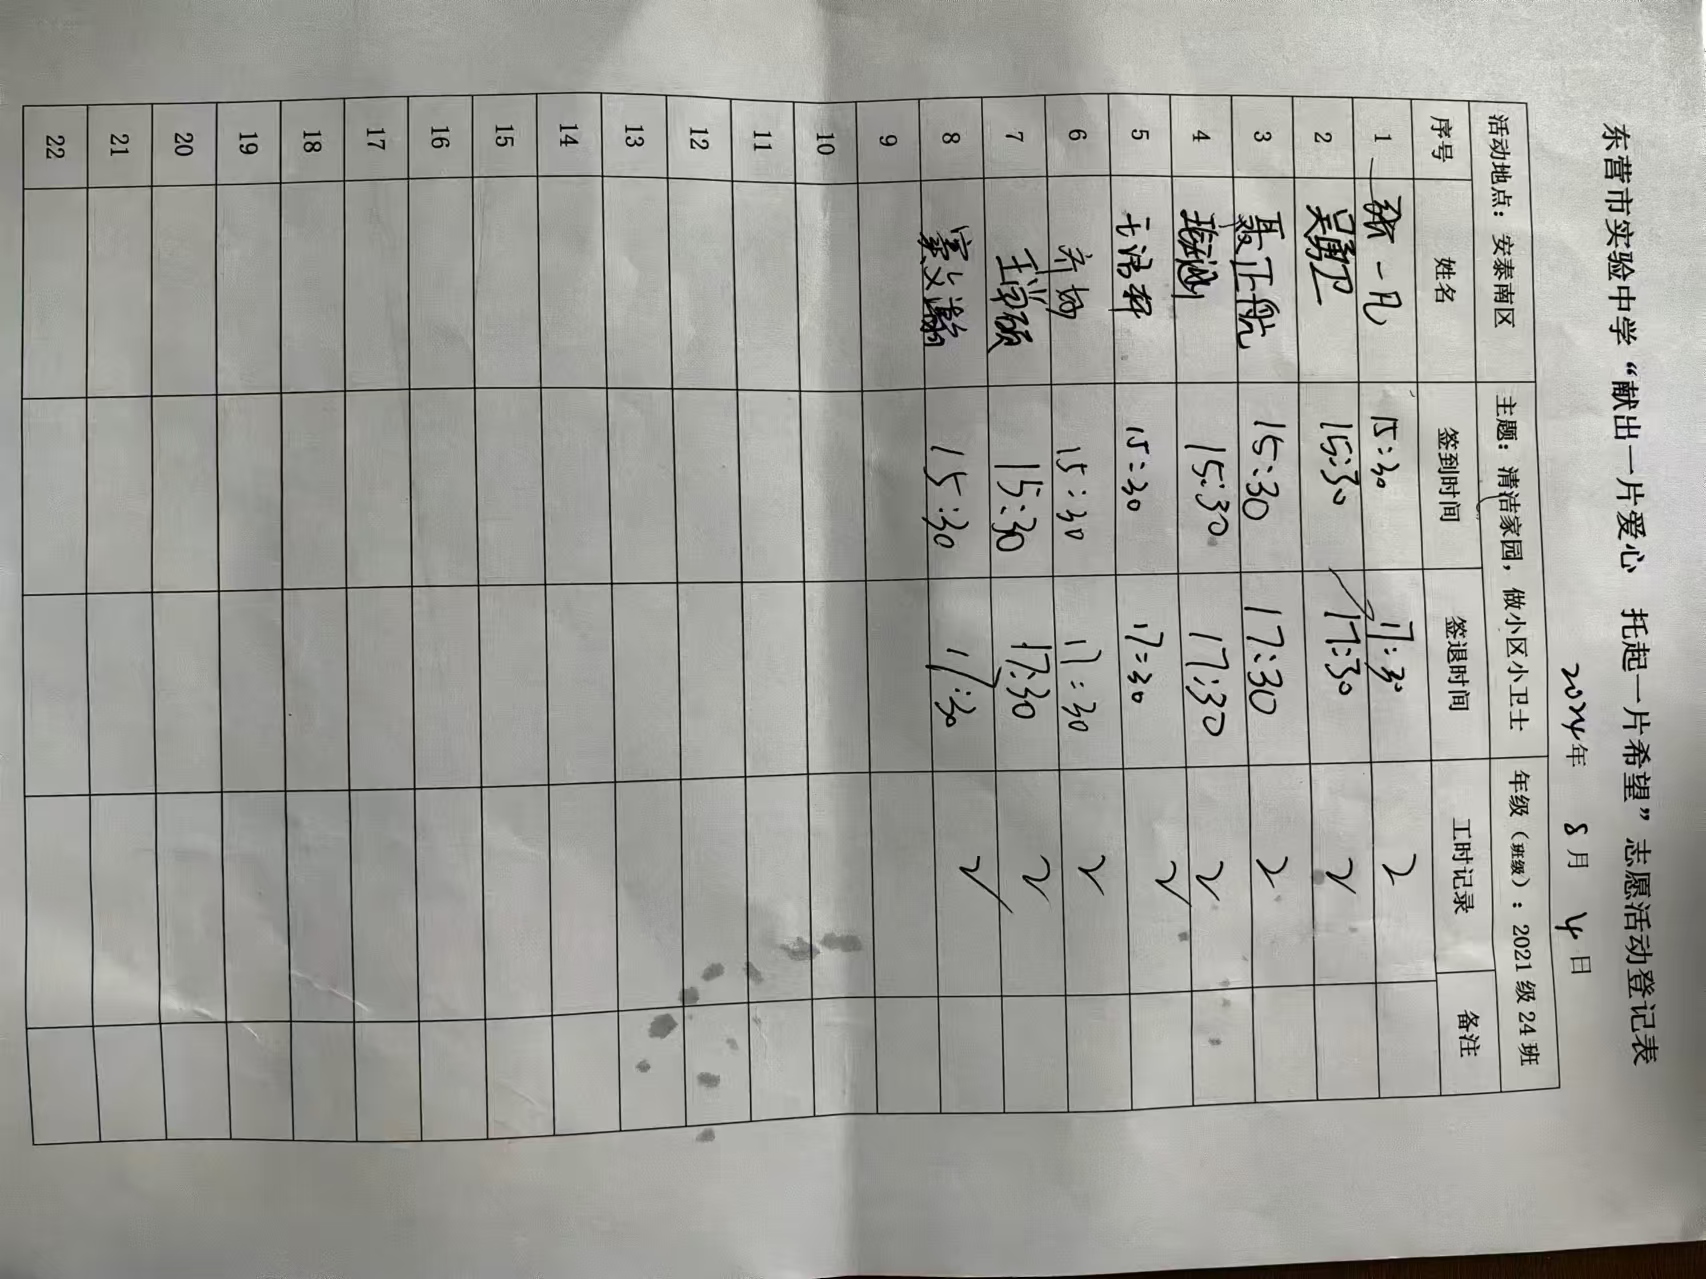 东营市实验中学“献出一片爱心 托起一片希望”志愿活动登记表
2024年 8月 4日
活动地点：安泰南区 主题：清洁家园，做小区小卫士 年级（班级）：2021级24班
序号 姓名 签到时间 签退时间 工时记录 备注
1 张一凡 15:30 17:30 2
2 吴勇卫 15:30 17:30 2
3 聂正航 15:30 17:30 2
4 15:30 17:30 2
5 15:30 17:30 2
6 15:30 17:30 2
7 王学硕 15:30 17:30 2
8 15:30 17:30 2
9
10
11
12
13
14
15
16
17
18
19
20
21
22